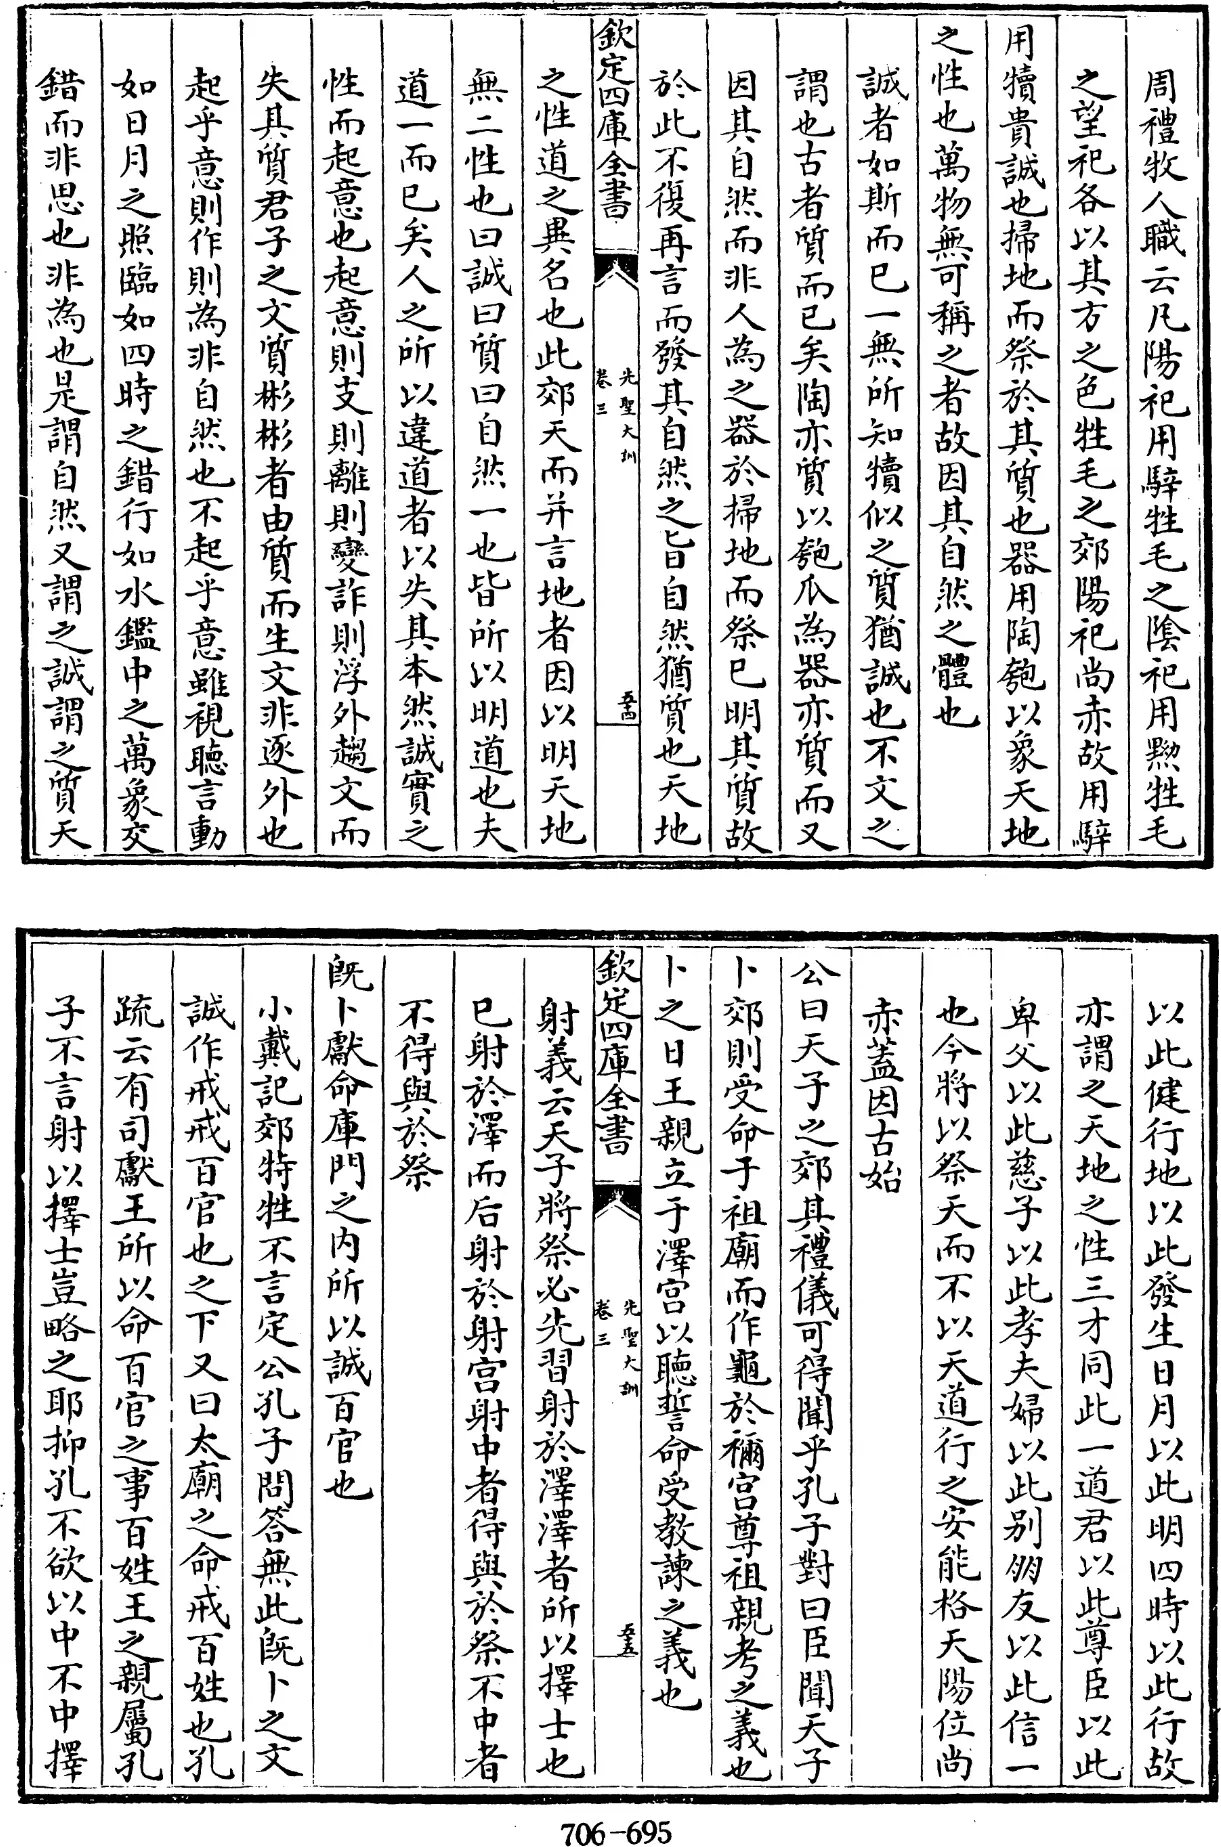 周禮牧人職云凡陽祀用騂牲毛之隂祀用黝牲毛
之望祀各以其方之色牲毛之郊陽祀尚赤故用騂
用犢貴誠也掃地而祭於其質也器用陶匏以象天地
之性也萬物無可稱之者故因其自然之體也
誠者如斯而已一無所知犢似之質猶誠也不文之
謂也古者質而已矣陶亦質以匏瓜為器亦質而又
因其自然而非人為之器於掃地而祭已明其質故
於此不復再言而發其自然之旨自然猶質也天地
欽定四庫全書
先聖大訓
卷三
五十四
之性道之異名也此郊天而并言地者因以明天地
無二性也曰誠曰質曰自然一也皆所以明道也夫
道一而已矣人之所以違道者以失其本然誠實之
性而起意也起意則支則離則變詐則浮外趨文而
失其質君子之文質彬彬者由質而生文非逐外也
起乎意則作則為非自然也不起乎意雖視聽言動
如日月之照臨如四時之錯行如水鑑中之萬象交
錯而非思也非為也是謂自然又謂之誠謂之質天
以此健行地以此發生日月以此明四時以此行故
亦謂之天地之性三才同此一道君以此尊臣以此
卑父以此慈子以此孝夫婦以此别朋友以此信一
也今將以祭天而不以天道行之安能格天陽位尚
赤蓋因古始
公曰天子之郊其禮儀可得聞乎孔子對曰臣聞天子
卜郊則受命于祖廟而作龜於禰宫尊祖親考之義也
卜之日王親立于澤宫以聽誓命受教諫之義也
欽定四庫全書
先聖大訓
卷三
五十五
射義云天子將祭必先習射於澤澤者所以擇士也
已射於澤而后射於射宫射中者得與於祭不中者
不得與於祭
既卜獻命庫門之内所以誠百官也
小戴記郊特牲不言定公孔子問答無此既卜之文
誠作戒戒百官也之下又曰太廟之命戒百姓也孔
疏云有司獻王所以命百官之事百姓王之親屬孔
子不言射以擇士豈略之耶抑孔不欲以中不中擇
706-695